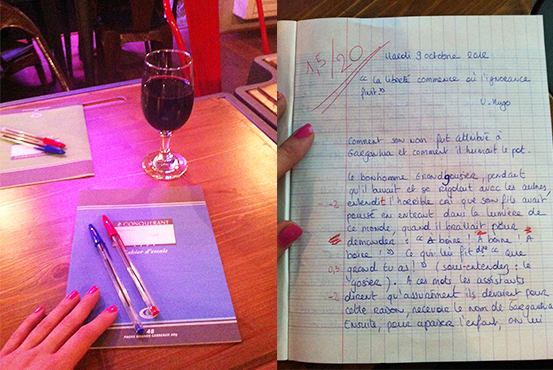 CONQUERANT
Cahier d'essais
48
1,5/20
Mardi 9 octobre 2012
" La liberté commence où l'ignorance
finit."
V. Hugo
Comment son nom fut attribué à
Gargantua et comment il humait le pot.
Le bonhomme Grandgousier, pendant
qu'il buvait et se rigolait avec les autres,
-2 entendit l'horrible cri que son fils avait
poussé en entrant dans la lumière de
ce monde, quand il braillait pour
demander : " A boire ! A boire ! A
boire ! " Ce qui lui fit dire " Que
0,5 grand tu as ! " (sous-entendez : le
gosier). A ces mots les assistants
-2 dirent qu'assurément ils devaient pour
cette raison, recevoir le nom de Gargantua
Ensuite, pour apaiser l'enfant, on lui